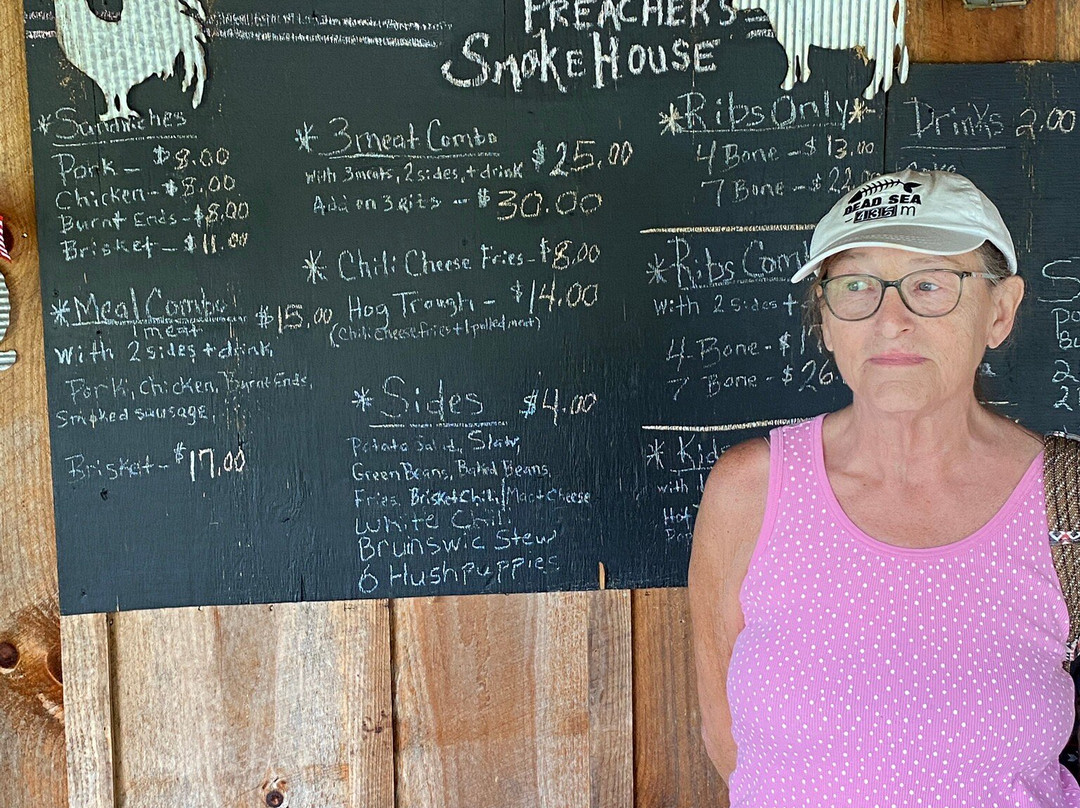 PREACHER'S
SMOKEHOUSE
*Sandwiches
Pork - $8.00
Chicken - $8.00
Burnt Ends - $8.00
Brisket - $11.00
*Meal Combo $15.00
meat
with 2 sides + drink
Pork, Chicken, Burnt Ends,
Smoked sausage,
Brisket - $17.00
*3 meat Combo $25.00
with 3 meats, 2 sides, + drink
Add on 3 Ribs - $30.00
*Chili Cheese Fries - $8.00
Hog Trough - $14.00
(Chili cheese fries + 1 pulled meat)
*Sides $4.00
Potato Salad, Slaw,
Green Beans, Baked Beans,
Fries, Brisket Chili, Mac + Cheese
White Chili
Brunswic Stew
6 Hushpuppies
*Ribs Only*
4 Bone - $13.00
7 Bone - $22.
*Ribs Com
with 2 sides +
4 Bone - $1
7 Bone - $26.
*Kids
with 1
Hot
Drinks 2.00
DEAD SEA
-435 m